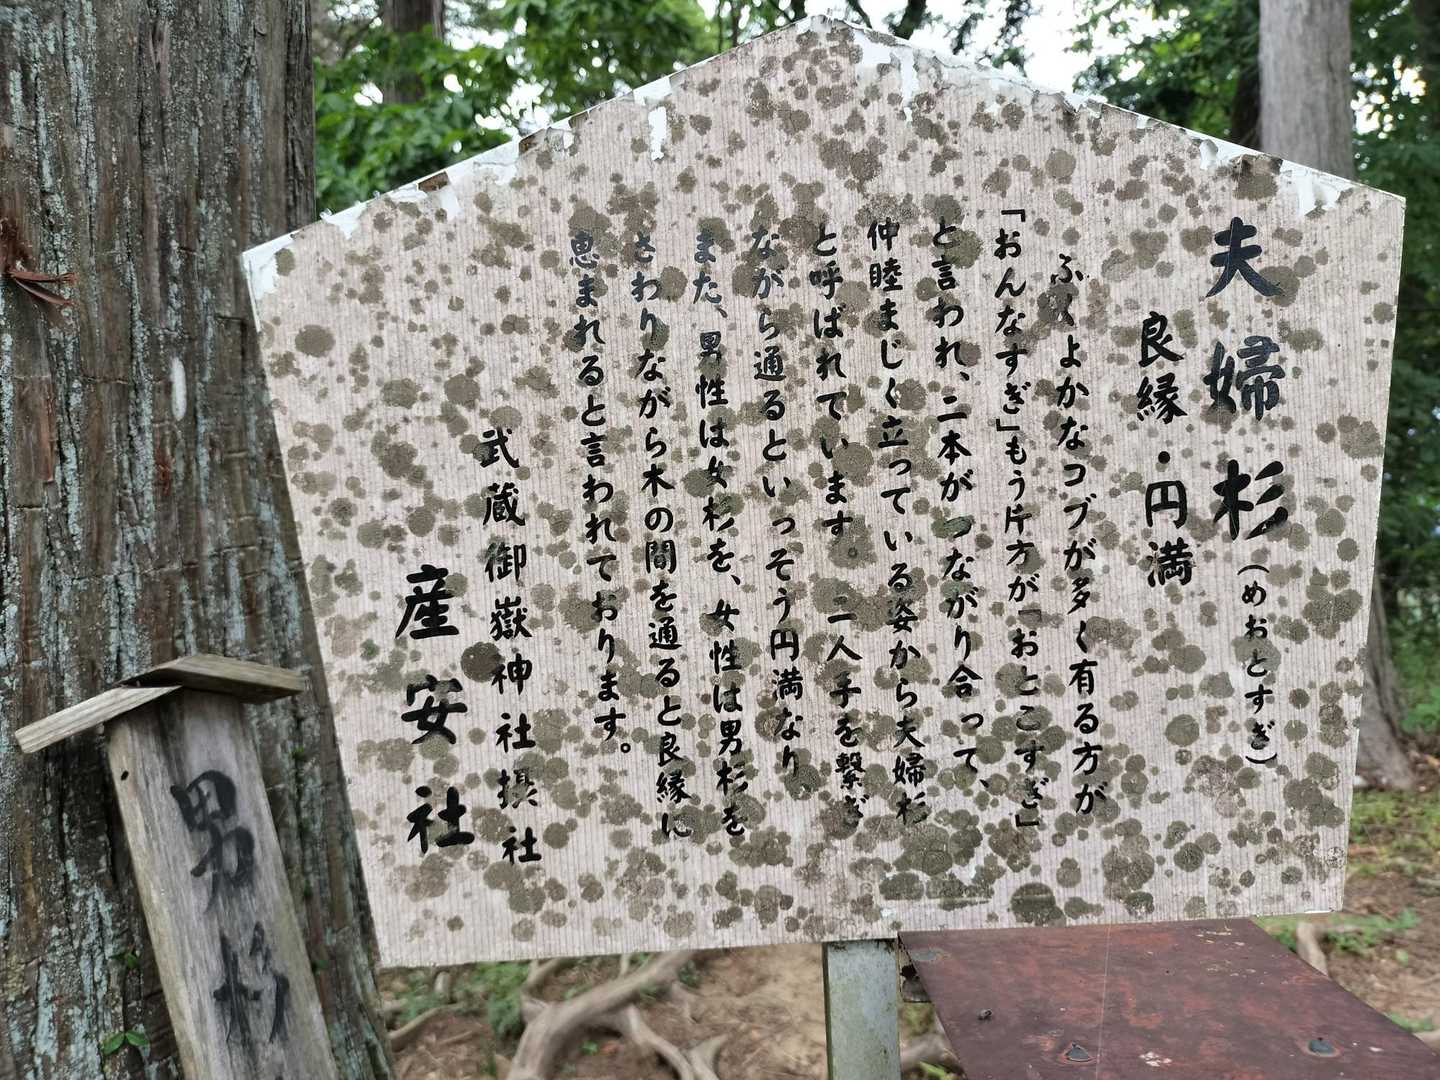 夫婦杉（めおとすぎ）
良縁・円満
ふくよかなコブが多く有る方が
「おんなすぎ」もう片方が「おとこすぎ」
と言われ、二本がつながり合って、
仲睦まじく立っている姿から夫婦杉
と呼ばれています。二人手を繋ぎ
ながら通るといっそう円満なり、
また、男性は女杉を、女性は男杉を
さわりながら木の間を通ると良縁に
恵まれると言われております。
武蔵御嶽神社摂社
産安社
男杉